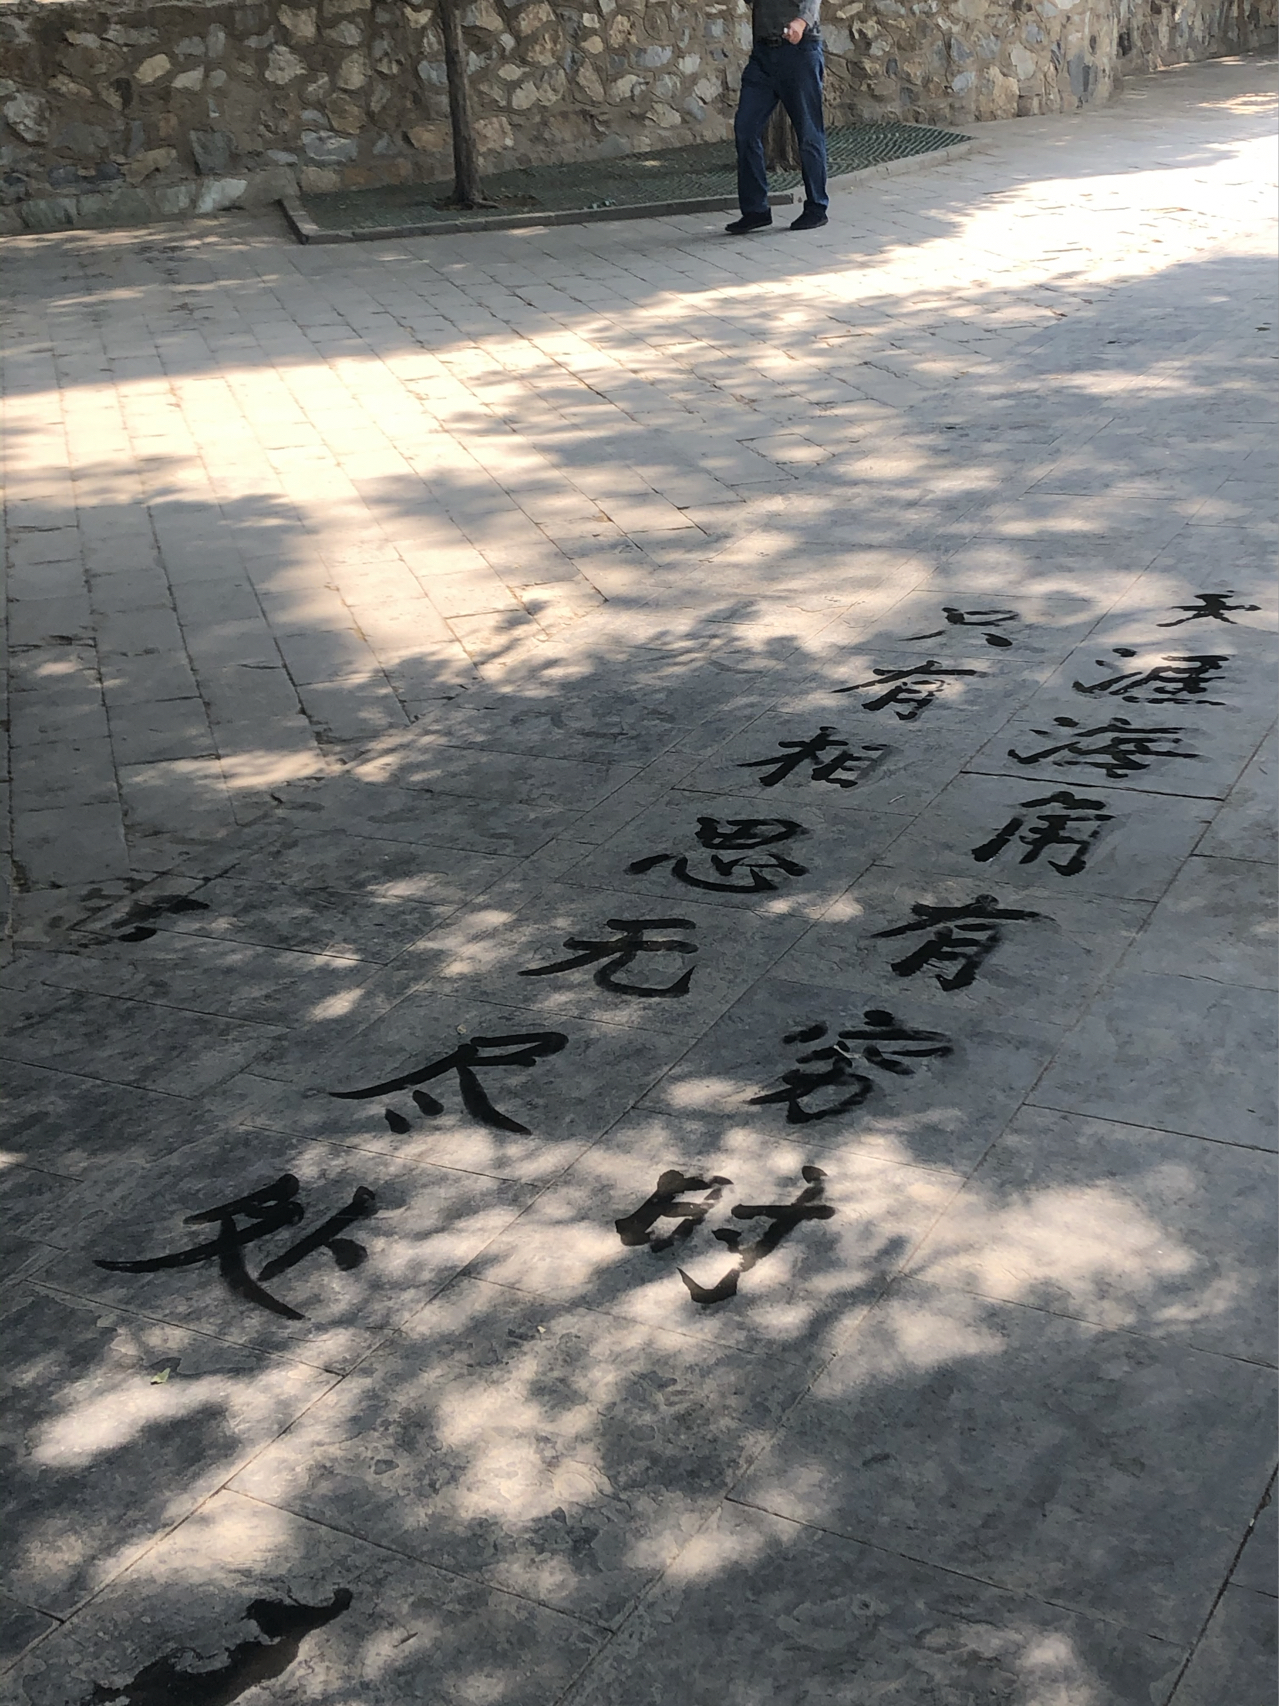 天涯海角有穷时
只有相思无尽处